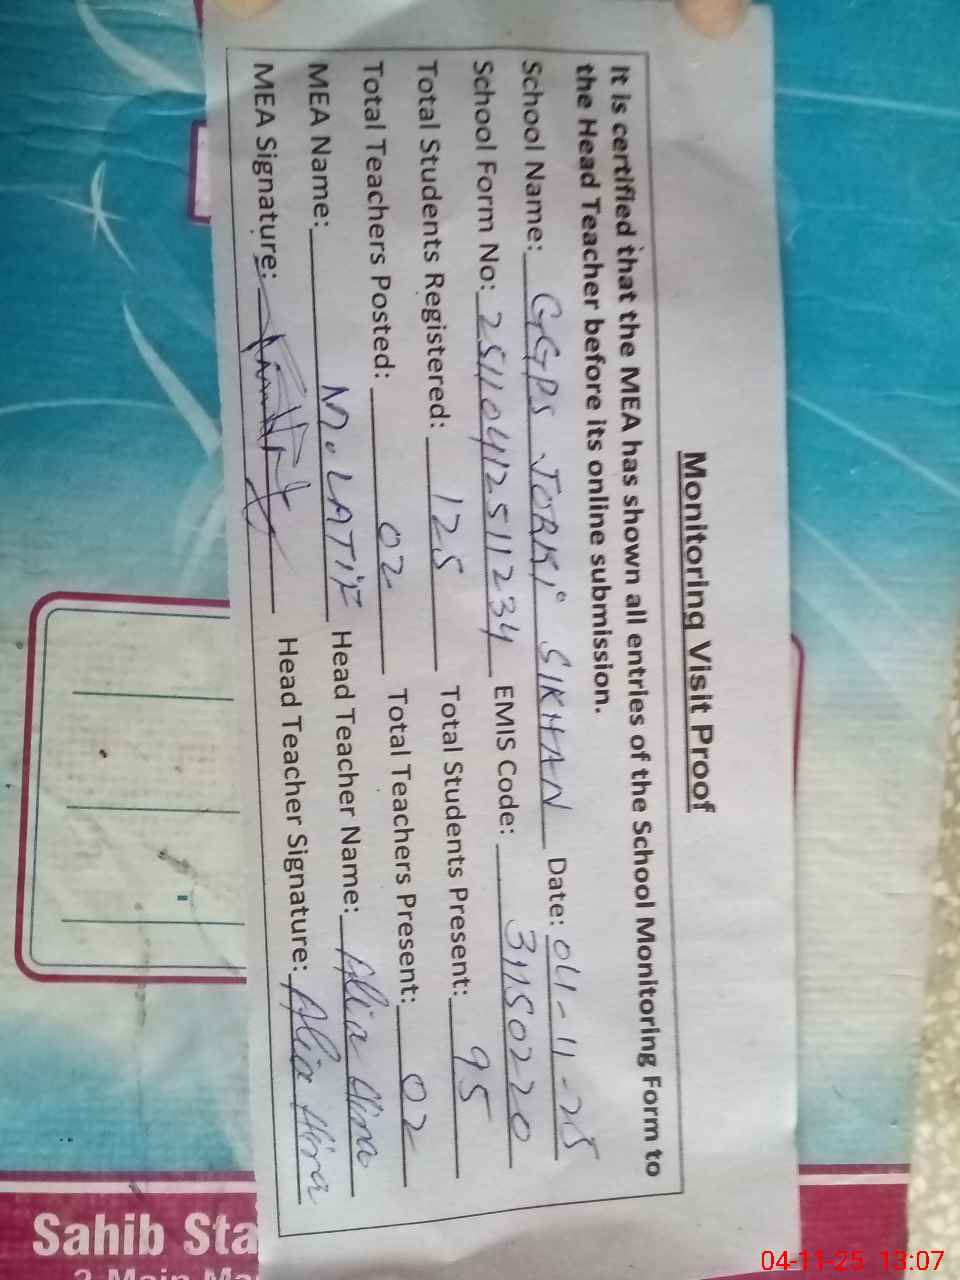 Monitoring Visit Proof
It is certified that the MEA has shown all entries of the School Monitoring Form to
the Head Teacher before its online submission.
School Name: GGPS JORKi SIKHAN Date: 04-11-25
School Form No: 25110412511234 EMIS Code: 31150220
Total Students Registered: 125 Total Students Present: 95
Total Teachers Posted: 02 Total Teachers Present: 02
MEA Name: M. LATIF Head Teacher Name: Alia Hina
MEA Signature: Head Teacher Signature: Alia Hira
Sahib Sta
2 Main Ma
04-11-25 13:07